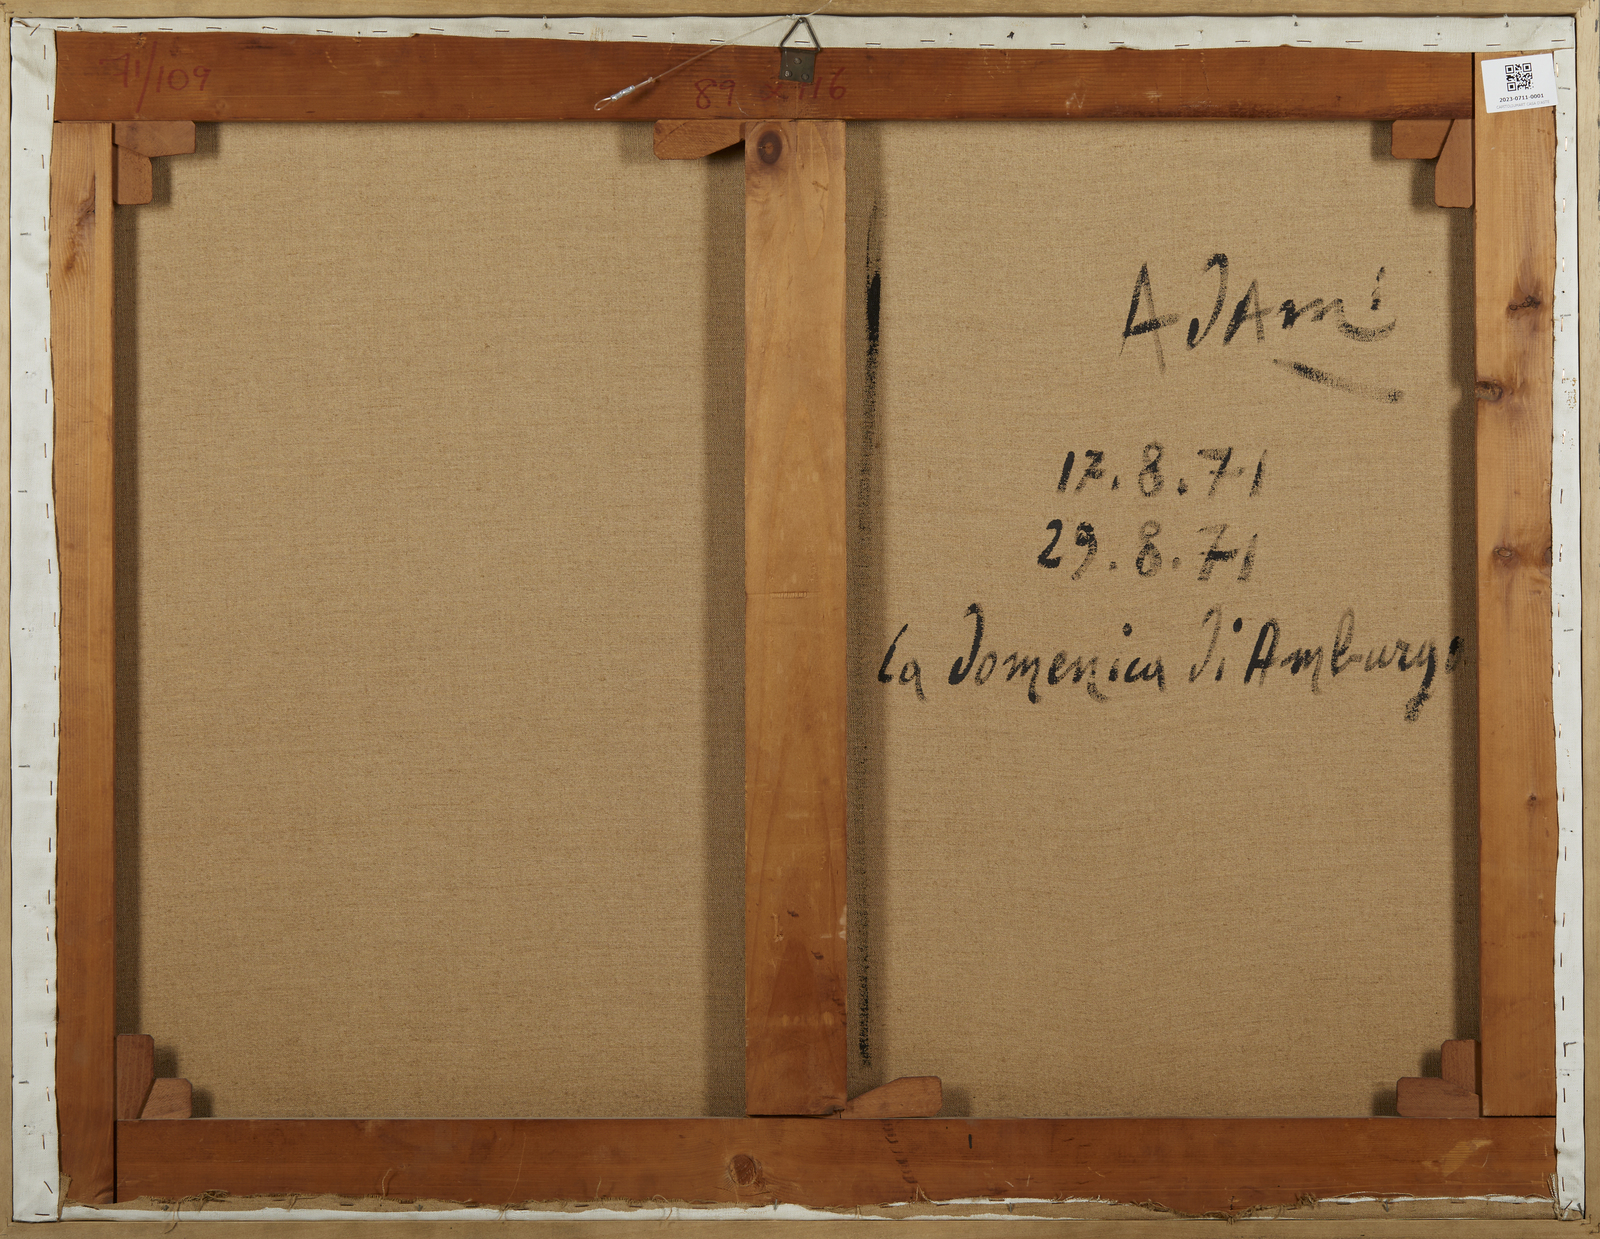 71/109
89 x 116
2023-0711-0001
ADAmi
17.8.71
29.8.71
la domenica di Amburgo